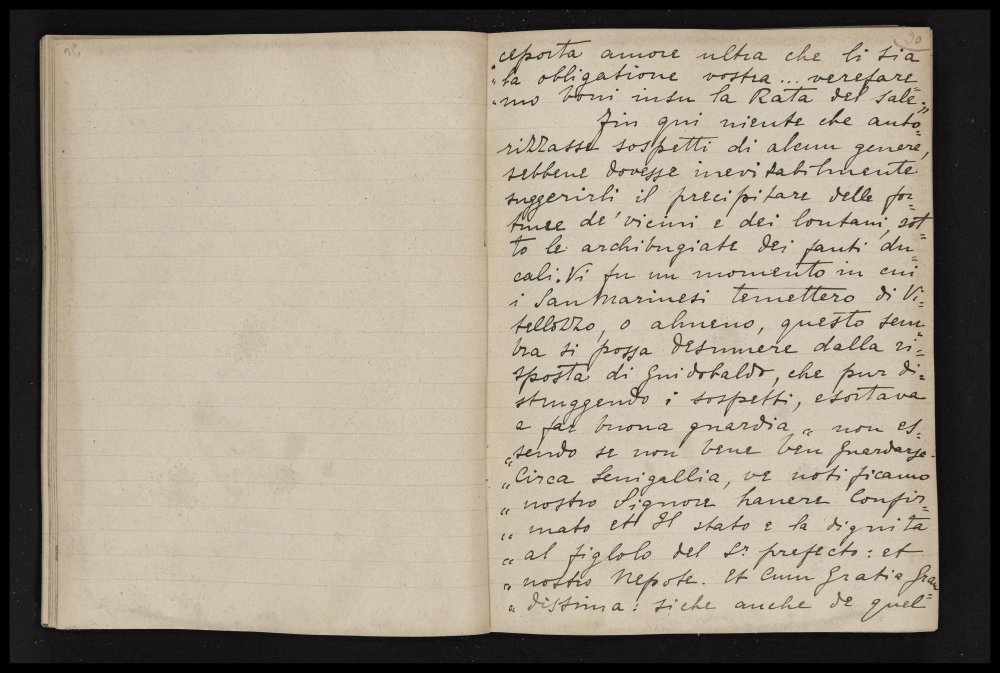 90
ceporta amore ultra che li sia
"la obligatione vostra ... verefare=
"mo boni insu la Rata del sale."
Fin qui niente che auto=
rizzasse sospetti di alcun genere,
sebbene dovesse inevitabilmente
suggerirli il precipitare delle for=
tune de' vicini e dei lontani, sot=
to le archibugiate dei fanti du=
cali. Vi fu un momento in cui
i San Marinesi temettero di Vi=
tellozzo, o almeno, questo sem=
bra si possa desumere dalla ri=
sposta di Guidobaldo, che pur di=
struggendo i sospetti, esortava
a far buona guardia " non es=
"sendo se non bene ben guardarse.
"Circa Senigallia, ve notificamo
" nostro Signore havere Confir=
" mato et Il stato e la dignità
" al figlolo del Sr. prefecto: et
" nostro Nepote. Et cum gratia gran=
" dissima: siche anche de quel